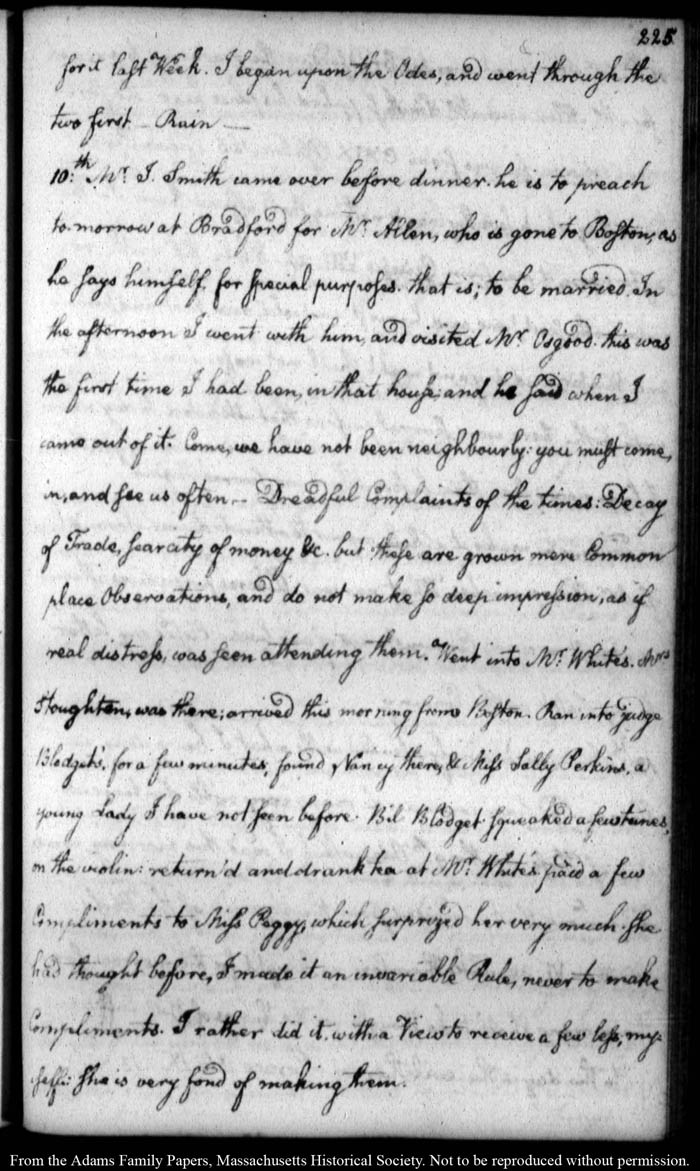 225
for it last Week. I began upon the Odes, and went through the
two first — Rain —
10.th Mr. J. Smith came over before dinner. he is to preach
to-morrow at Bradford for Mr. Allen, who is gone to Boston, as
he says himself, for special purposes. that is; to be married. In
the afternoon I went with him, and visited Mr. Osgood. this was
the first time I had been, in that house; and he said when I
came out of it. Come, we have not been neighbourly: you must come,
in, and see us often — Dreadful Complaints of the times: Decay
of Trade, scarcity of money &c. but these are grown mere Common
place Observations, and do not make so deep impression, as if
real distress, was seen attending them. Went into Mr. White's. Mrs
Houghten, was there; arrived this morning from Boston. Ran into judge
Blodget's, for a few minutes, found Nancy there, & Miss Sally Perkins, a
young Lady I have not seen before. Bil Blodget squeaked a few tunes,
on the violin: return'd and drank tea at Mr. White's paid a few
Compliments to Miss Peggy, which surprized her very much. She
had thought before, I made it an invariable Rule, never to make
Compliments. I rather did it, with a View to receive a few less, my-
self: She is very fond of making them.
From the Adams Family Papers, Massachusetts Historical Society. Not to be reproduced without permission.